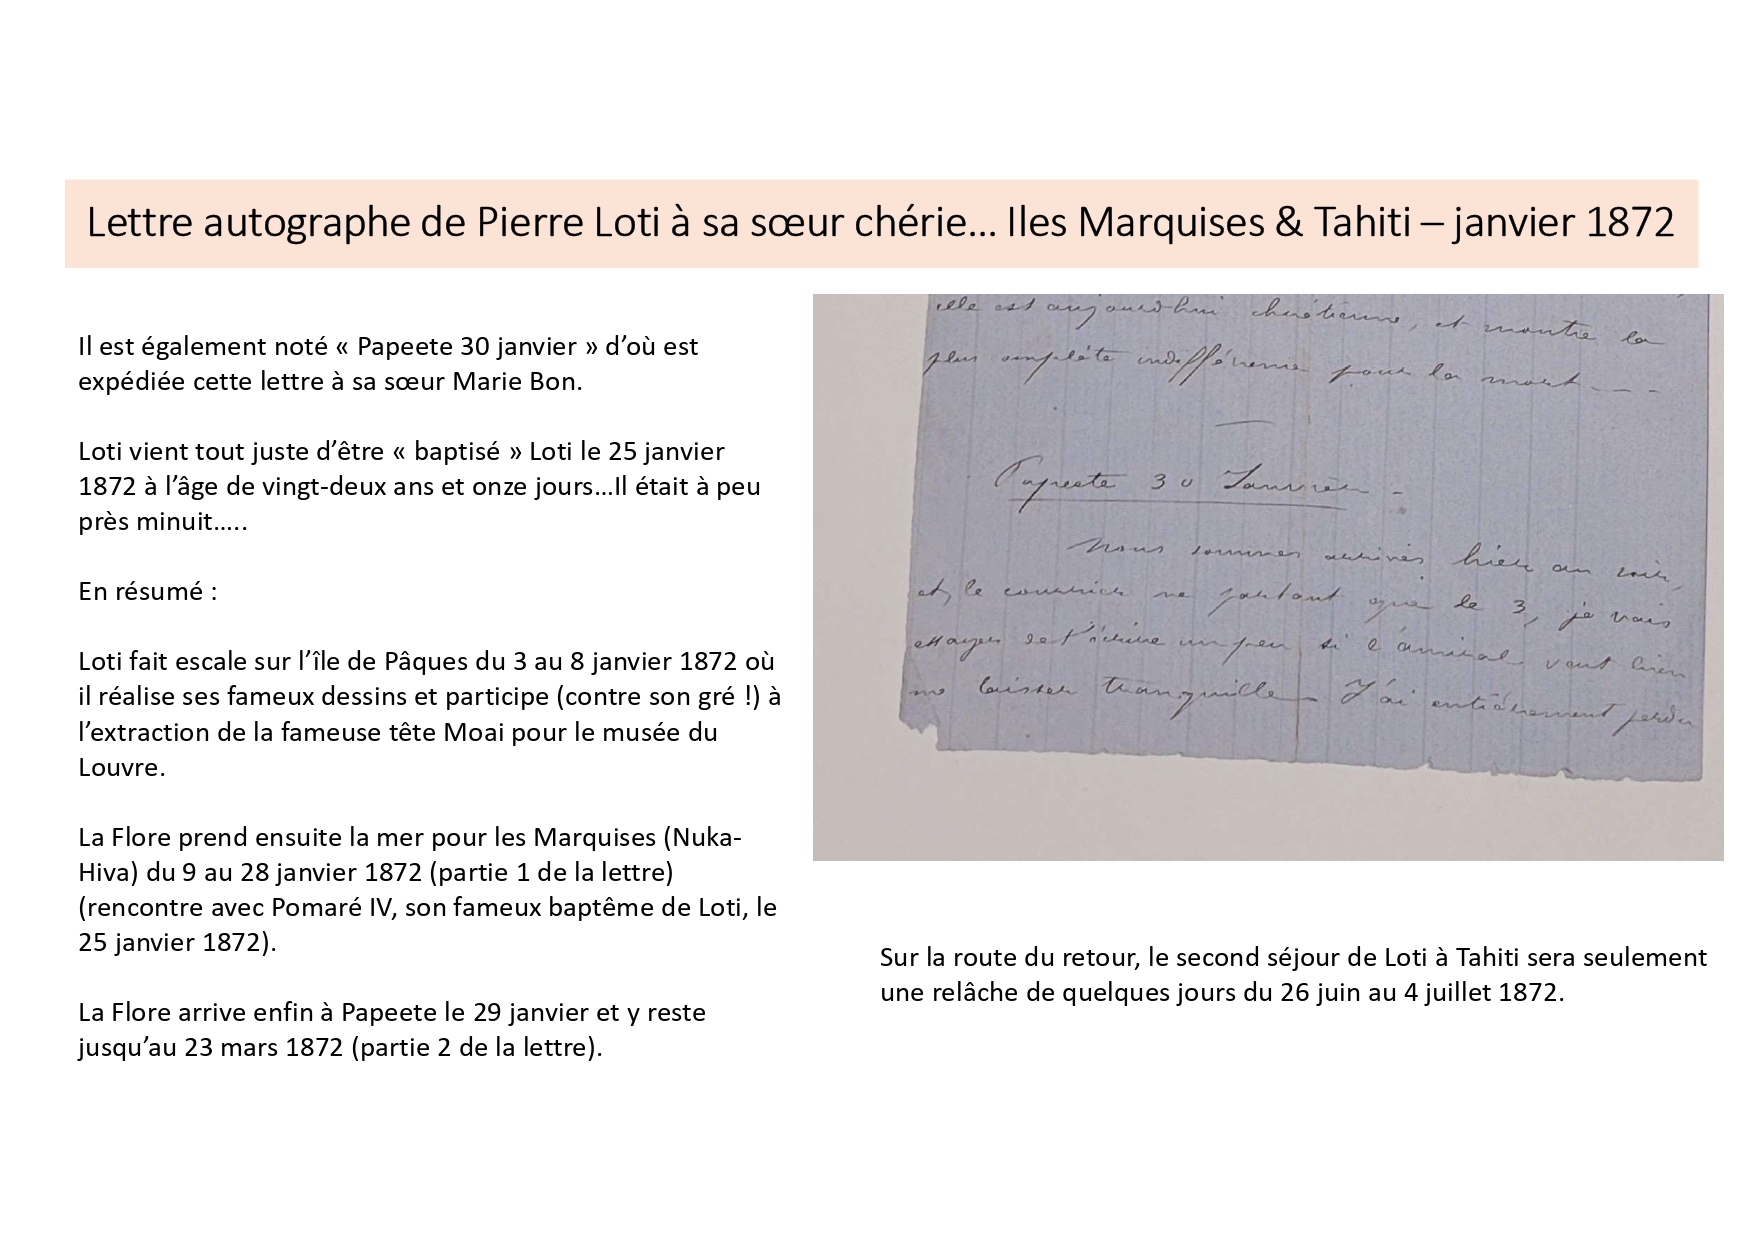 Lettre autographe de Pierre Loti à sa sœur chérie... Iles Marquises & Tahiti – janvier 1872
Il est également noté « Papeete 30 janvier » d’où est
expédiée cette lettre à sa sœur Marie Bon.
Loti vient tout juste d’être « baptisé » Loti le 25 janvier
1872 à l’âge de vingt-deux ans et onze jours…Il était à peu
près minuit…..
En résumé :
Loti fait escale sur l’île de Pâques du 3 au 8 janvier 1872 où
il réalise ses fameux dessins et participe (contre son gré !) à
l’extraction de la fameuse tête Moai pour le musée du
Louvre.
La Flore prend ensuite la mer pour les Marquises (Nuka-
Hiva) du 9 au 28 janvier 1872 (partie 1 de la lettre)
(rencontre avec Pomaré IV, son fameux baptême de Loti, le
25 janvier 1872).
La Flore arrive enfin à Papeete le 29 janvier et y reste
jusqu’au 23 mars 1872 (partie 2 de la lettre).
elle est aujourd'hui chrétienne, et montre la
plus complète indifférence pour la mort - - -
Papeete 30 Janvier -
Nous sommes arrivés hier au soir,
et, le courrier ne partant que le 3, je vais
essayer de t'écrire un peu si l'amiral veut bien
me laisser tranquille - J'ai entièrement perdu
Sur la route du retour, le second séjour de Loti à Tahiti sera seulement
une relâche de quelques jours du 26 juin au 4 juillet 1872.